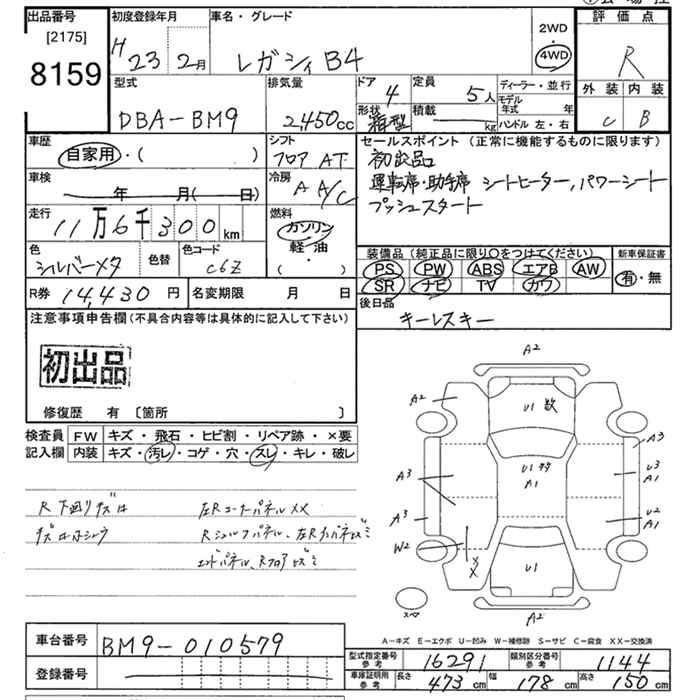 出品番号
[2175]
8159
初度登録年月
H 23 2月
車名・グレード
レガシィ B4
2WD
4WD
評価点
R
外装 内装
C B
型式
DBA-BM9
排気量
2,450cc
ドア
4
形状
箱型
定員
5人
積載
kg
ディーラー・並行
モデル年式 年
ハンドル 左・右
車歴
自家用・( )
シフト
フロア AT
セールスポイント (正常に機能するものに限ります)
初出品
運転席・助手席 シートヒーター, パワーシート
プッシュスタート
車検
年 月( 日)
冷房
A A/C
走行
11万6千300km
燃料
ガソリン
軽・油
( ・ )
色
シルバーメタ
色替
色コード
C6Z
装備品 (純正品に限り○をつけてください)
PS PW ABS エアB AW
SR ナビ TV カワ
新車保証書
有・無
R券 14,430 円
名変期限 月 日
後日品
キーレスキー
注意事項申告欄 (不具合内容等は具体的に記入して下さい)
初出品
修復歴 有 〔箇所 〕
検査員
記入欄
FW キズ・飛石・ヒビ割・リペア跡・×要
内装 キズ・汚レ・コゲ・穴・スレ・キレ・破レ
R 下廻りキズ
左RコーナーパネルXX
エンドパネル、Rフロア
A2
A2
U1 数
A3
U1
A1
U3
A1
A3
A3
U2
A1
W2
XX
U1
A2
スペ
A-キズ E-エクボ U-凹み W-補修跡 S-サビ C-腐食 XX-交換済
車台番号
BM9-010579
登録番号
型式指定番号
参考
16291
類別区分番号
参考
1144
車庫証明用
参考
長さ 473 cm
幅 178 cm
高さ 150 cm